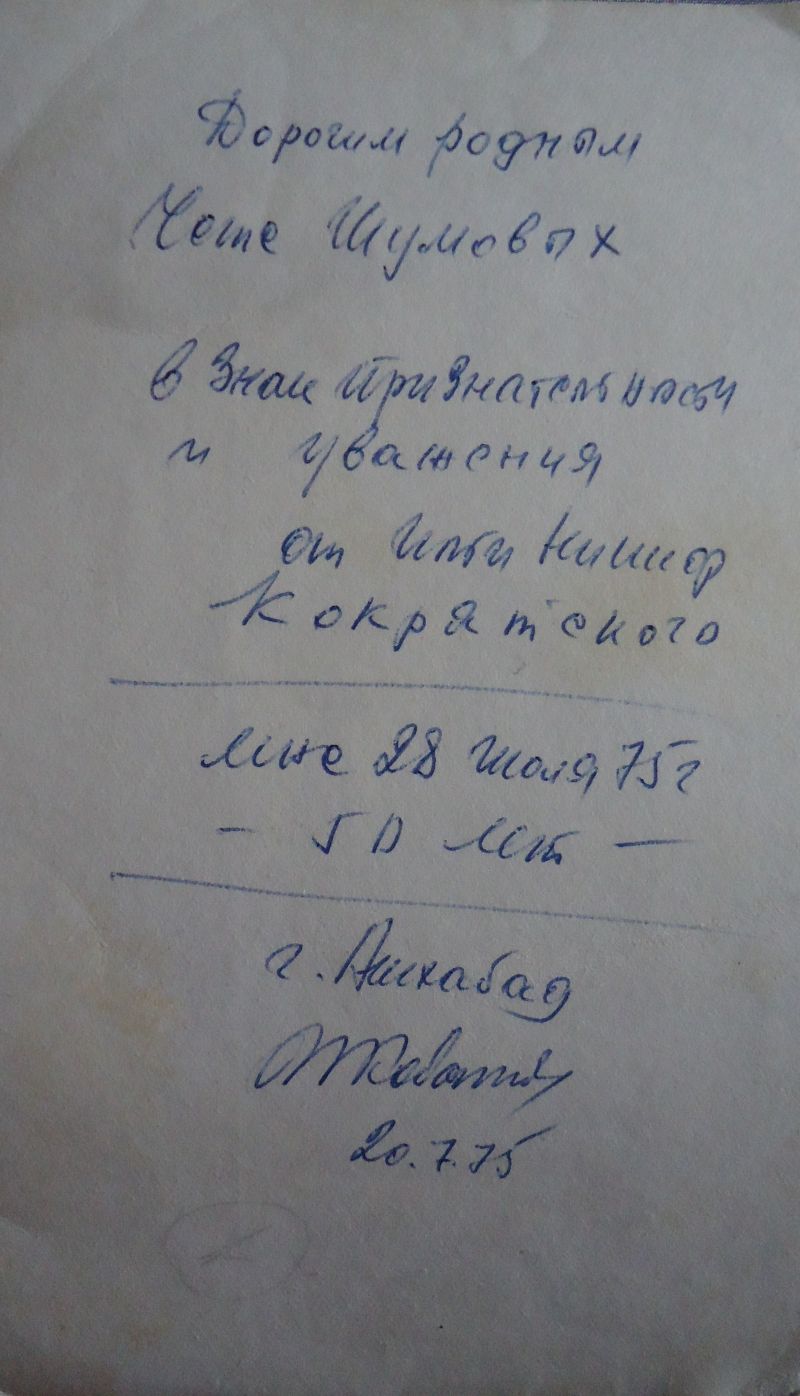 Дорогим родным
Чете Шумовых
в знак признательности
и уважения
от
Кокрятского
мне 28 июля 75 г
- 50 лет -
г. Ашхабад
20.7.75